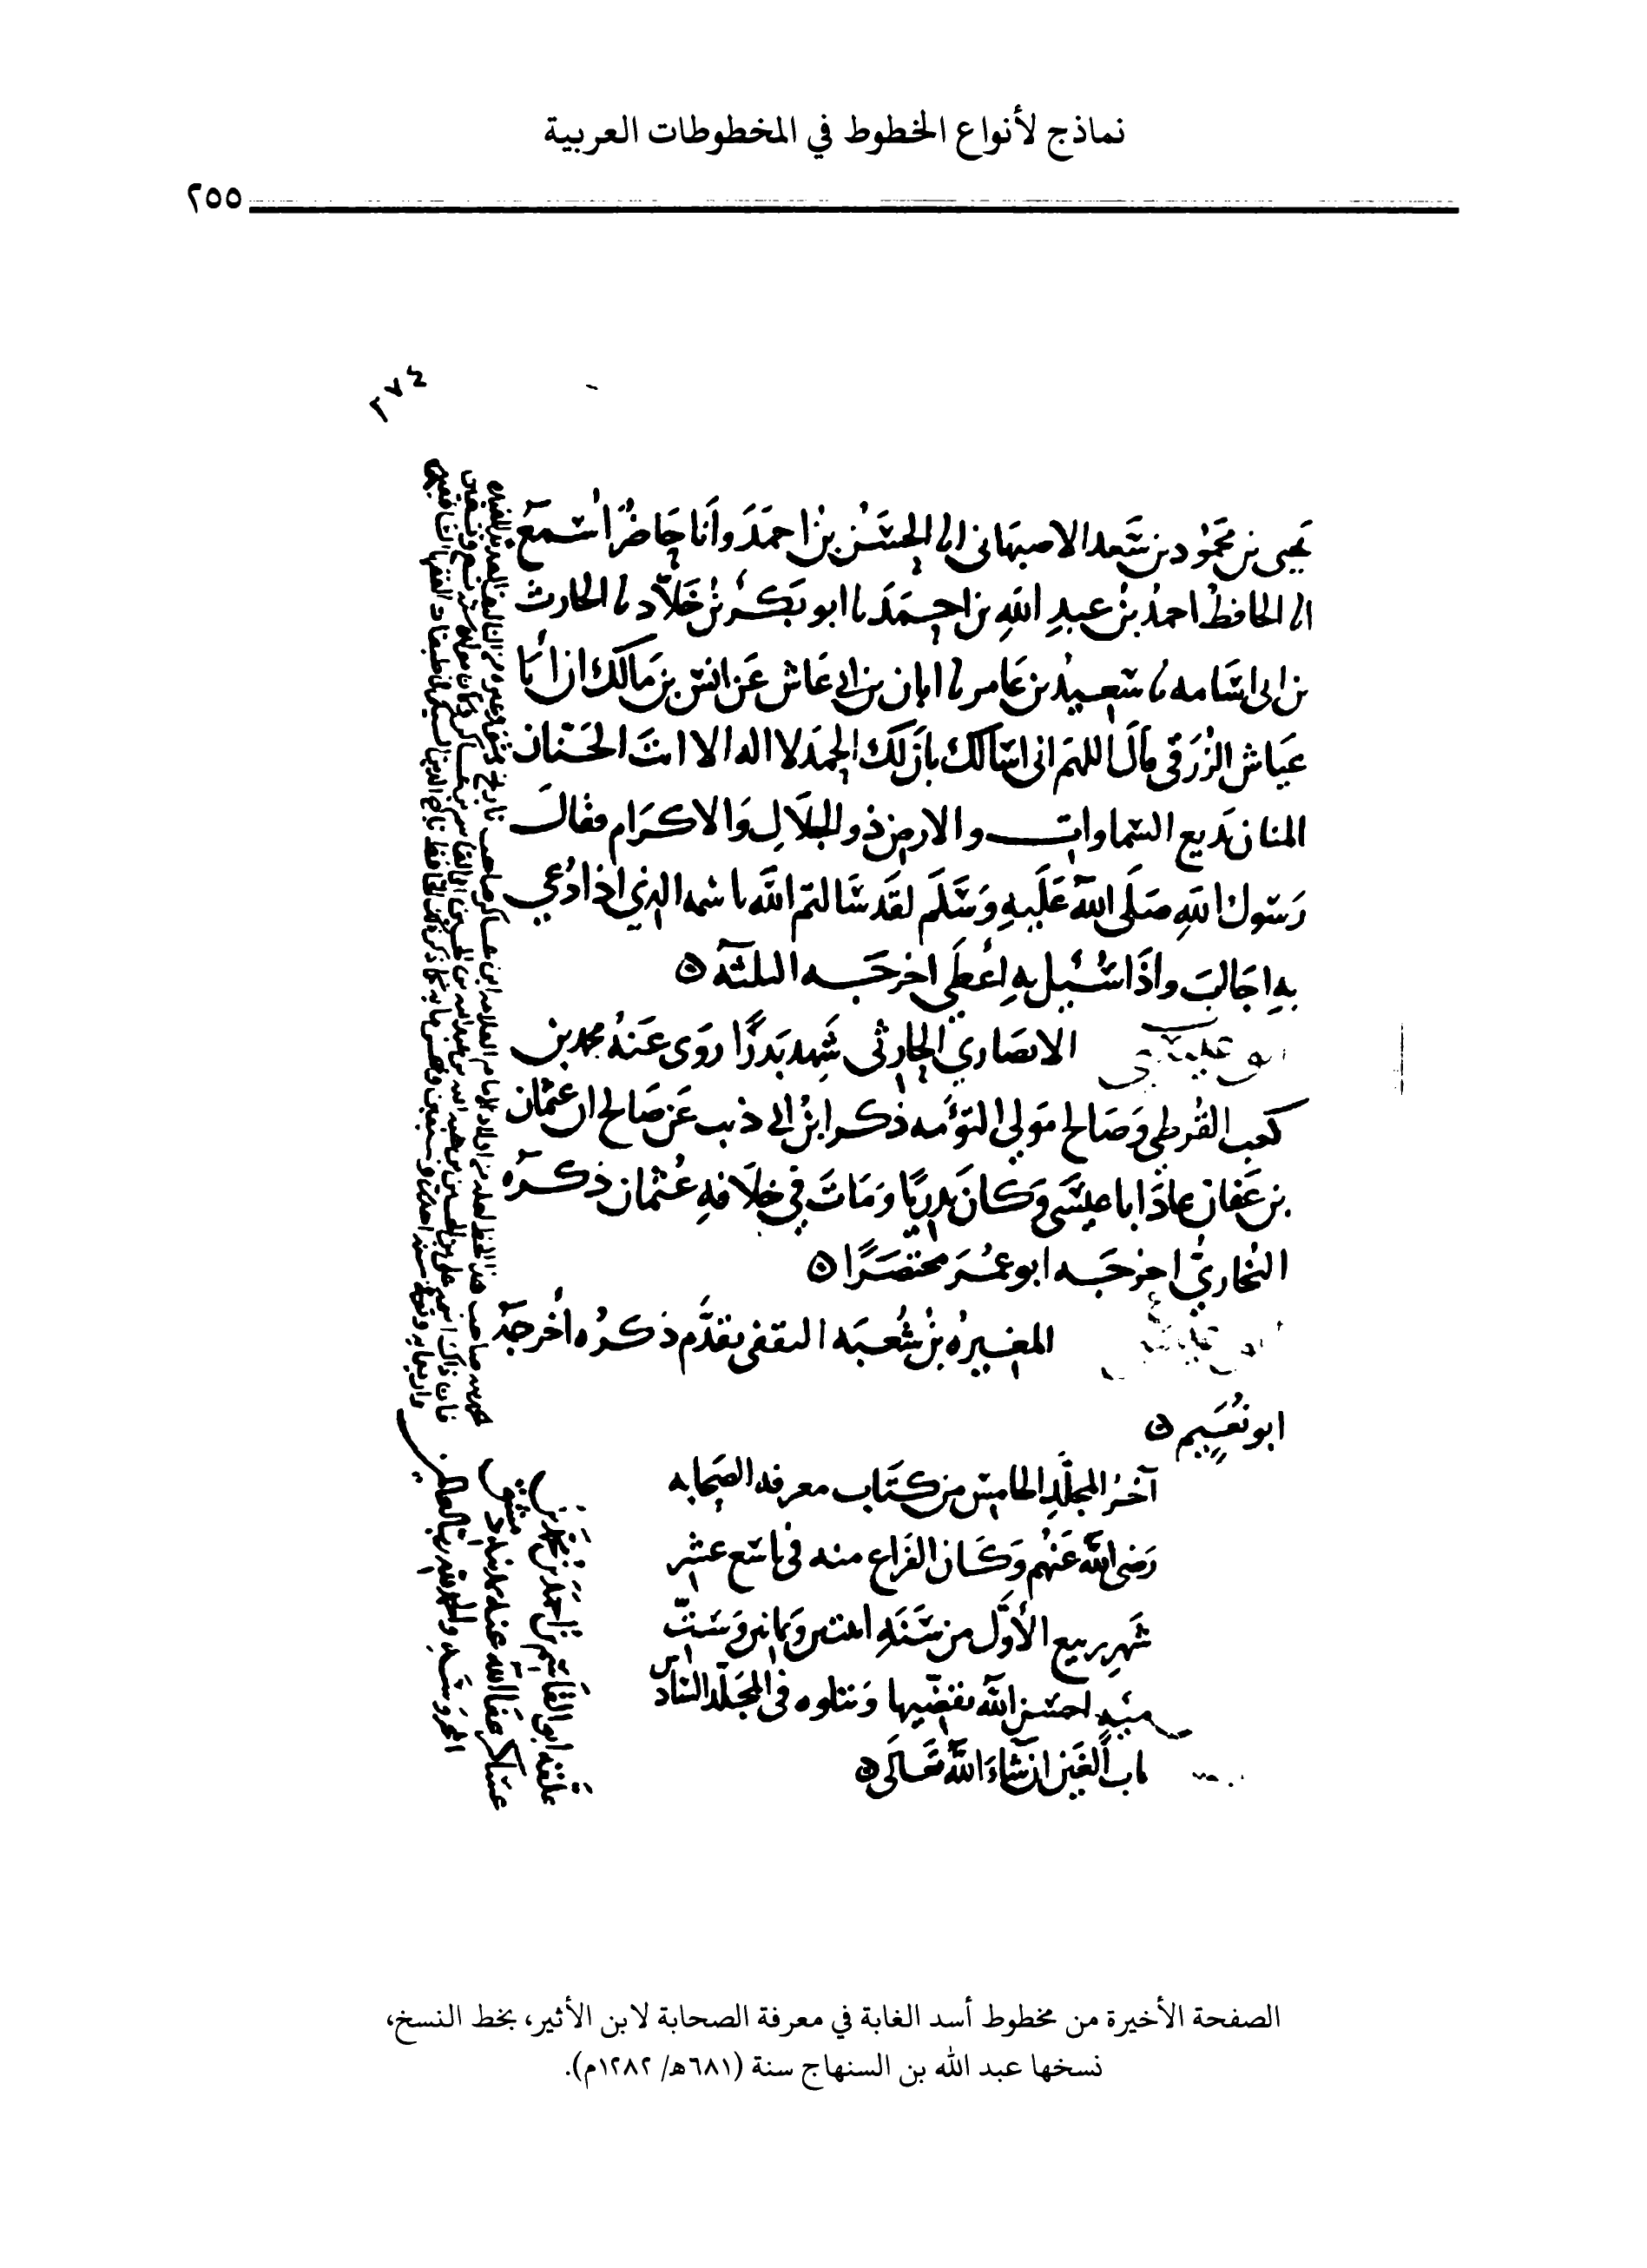 نماذج لأنواع الخطوط في المخطوطات العربية
٢٥٥
٢٧٤
يحيى بن محمُود بن سَعد الاصبهاني انا الحسَن بن احمَدَ وأنا حَاضرٌ اسمَعُ
انا الحافظ احمدُ بنُ عبدِ اللهِ بن احمَدَ نا ابو بَكر بن خَلاّد نا الحارث
بن ابي اسَامه نا سَعيدُ بن عَامر نا ابان بن ابي عَاش عَن انس بن مَالك ان أبا
عيَاش الزُرَقي قالَ اللهمَ اني اسَالك بأن لَك الحمدَ لا اله الا انتَ الحَنان
المنان بَديع السَماوات والارض ذو الجلَالِ وَالاكرَام فقالَ
رَسول اللهِ صَلَى اللهُ عَلَيهِ وَسَلَم لقَد سَالتم اللهَ باسمه الذي اذا دُعي
بهِ اجَابَ واذَا سُئِل بهِ اعُطَي اخرجَه الثلثه
ابو عيسَى الانصَاري الحارثي شَهد بَدرًا روَى عَنهُ محمد بن
كعب القُرظي وَصَالح مَولي التوأمه ذكر ابنُ ابي ذئب عَن صَالح ان عثمان
بن عَفان عادَ ابا عيسَى وَكانَ بدرِيًا وَمَاتَ في خلَافهِ عُثمان ذكرَه
البُخاريُ اخرجَه ابو عمُرَ مختصَرًا
ابو عيسَى المغيرهُ بنُ شُعبَه الثقفي تقدَّم ذكرُه أخرجَهُ
ابو نُعَيم
آخرُ المجلَّدِ الخامِس من كتَاب معرفه الصَحابه
رَضي اللهُ عَنهُم وَكَان الفرَاغ منه في تاسَع عشر
شَهرِ ربيع الأوَّل من سَنَهِ اثنتين وثمانين وَستّ
مئهِ احسَن اللهُ تقضّيها وَنتلوه في المجَلّد السَادس
بابُ الغَين ان شَاءَ اللهُ تعَالَى
علقه ابو القاسم بن احمَد بن محمَد بن
عسَاكر عفَا اللهُ عنه بمدينه دمشق
المحروسَهِ والحمد لله رب العالمين
الصفحة الأخيرة من مخطوط أسد الغابة في معرفة الصحابة لابن الأثير، بخط النسخ،
نسخها عبد الله بن السنهاج سنة (٦٨١هـ/ ١٢٨٢م).